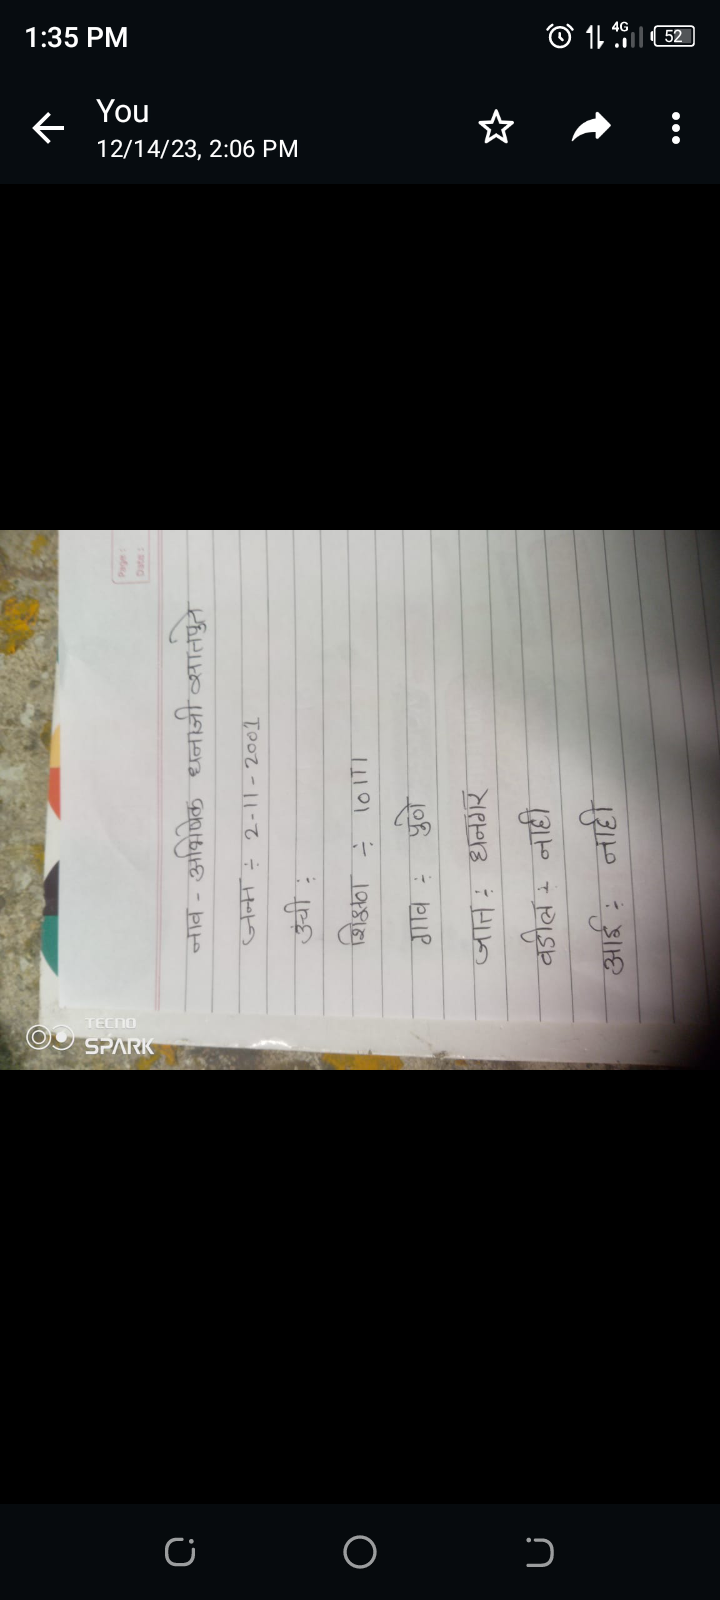 1:35 PM
4G
52
You
12/14/23, 2:06 PM
Page :
Date :
नाव - अभिषेक धनाजी सातपुते
जन्म ÷ 2-11-2001
उंची :
शिक्षण ÷ 10
गाव ÷ पुणे
जात ÷ धनगर
वडील ÷ नाही
आई : नाही
TECNO
SPARK